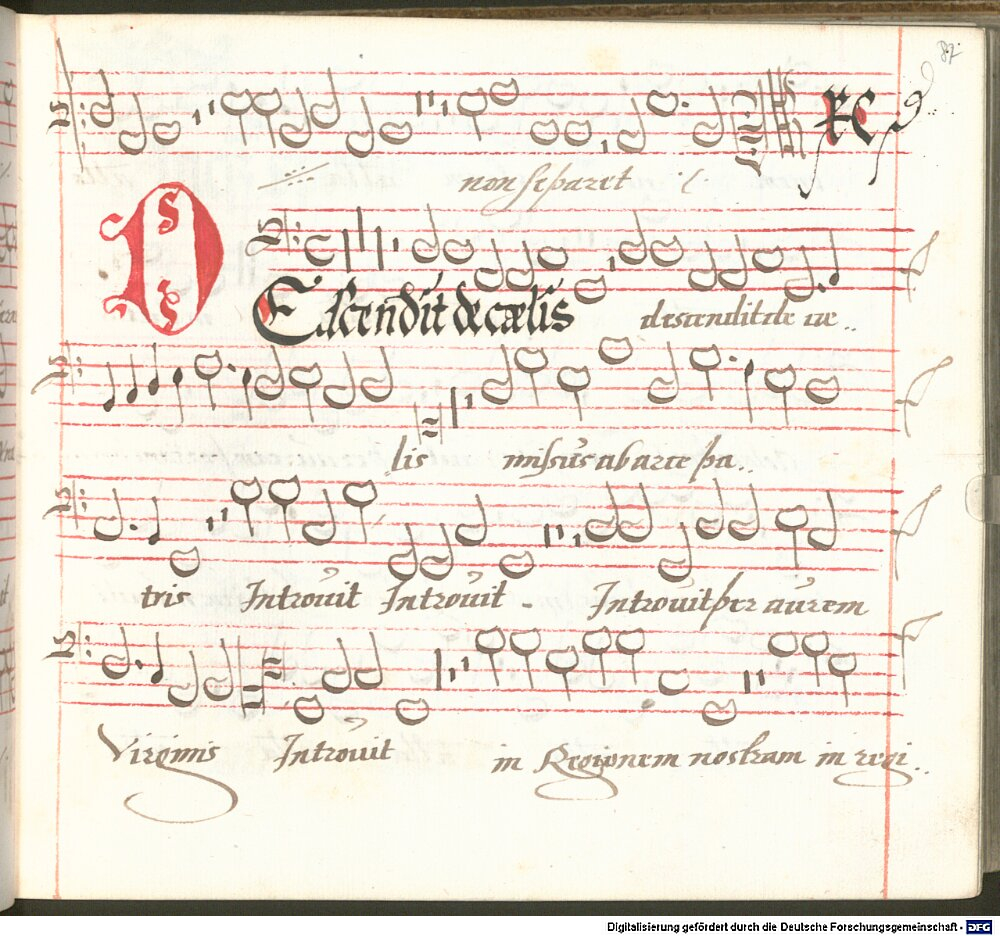 87.
non separet
DEscendit de cælis descendit de ce..
lis missus ab arce pa..
tris Introuit Introuit - Introuit per aurem
Virginis Introuit in Regionem nostram in regi..
Digitalisierung gefördert durch die Deutsche Forschungsgemeinschaft - DFG